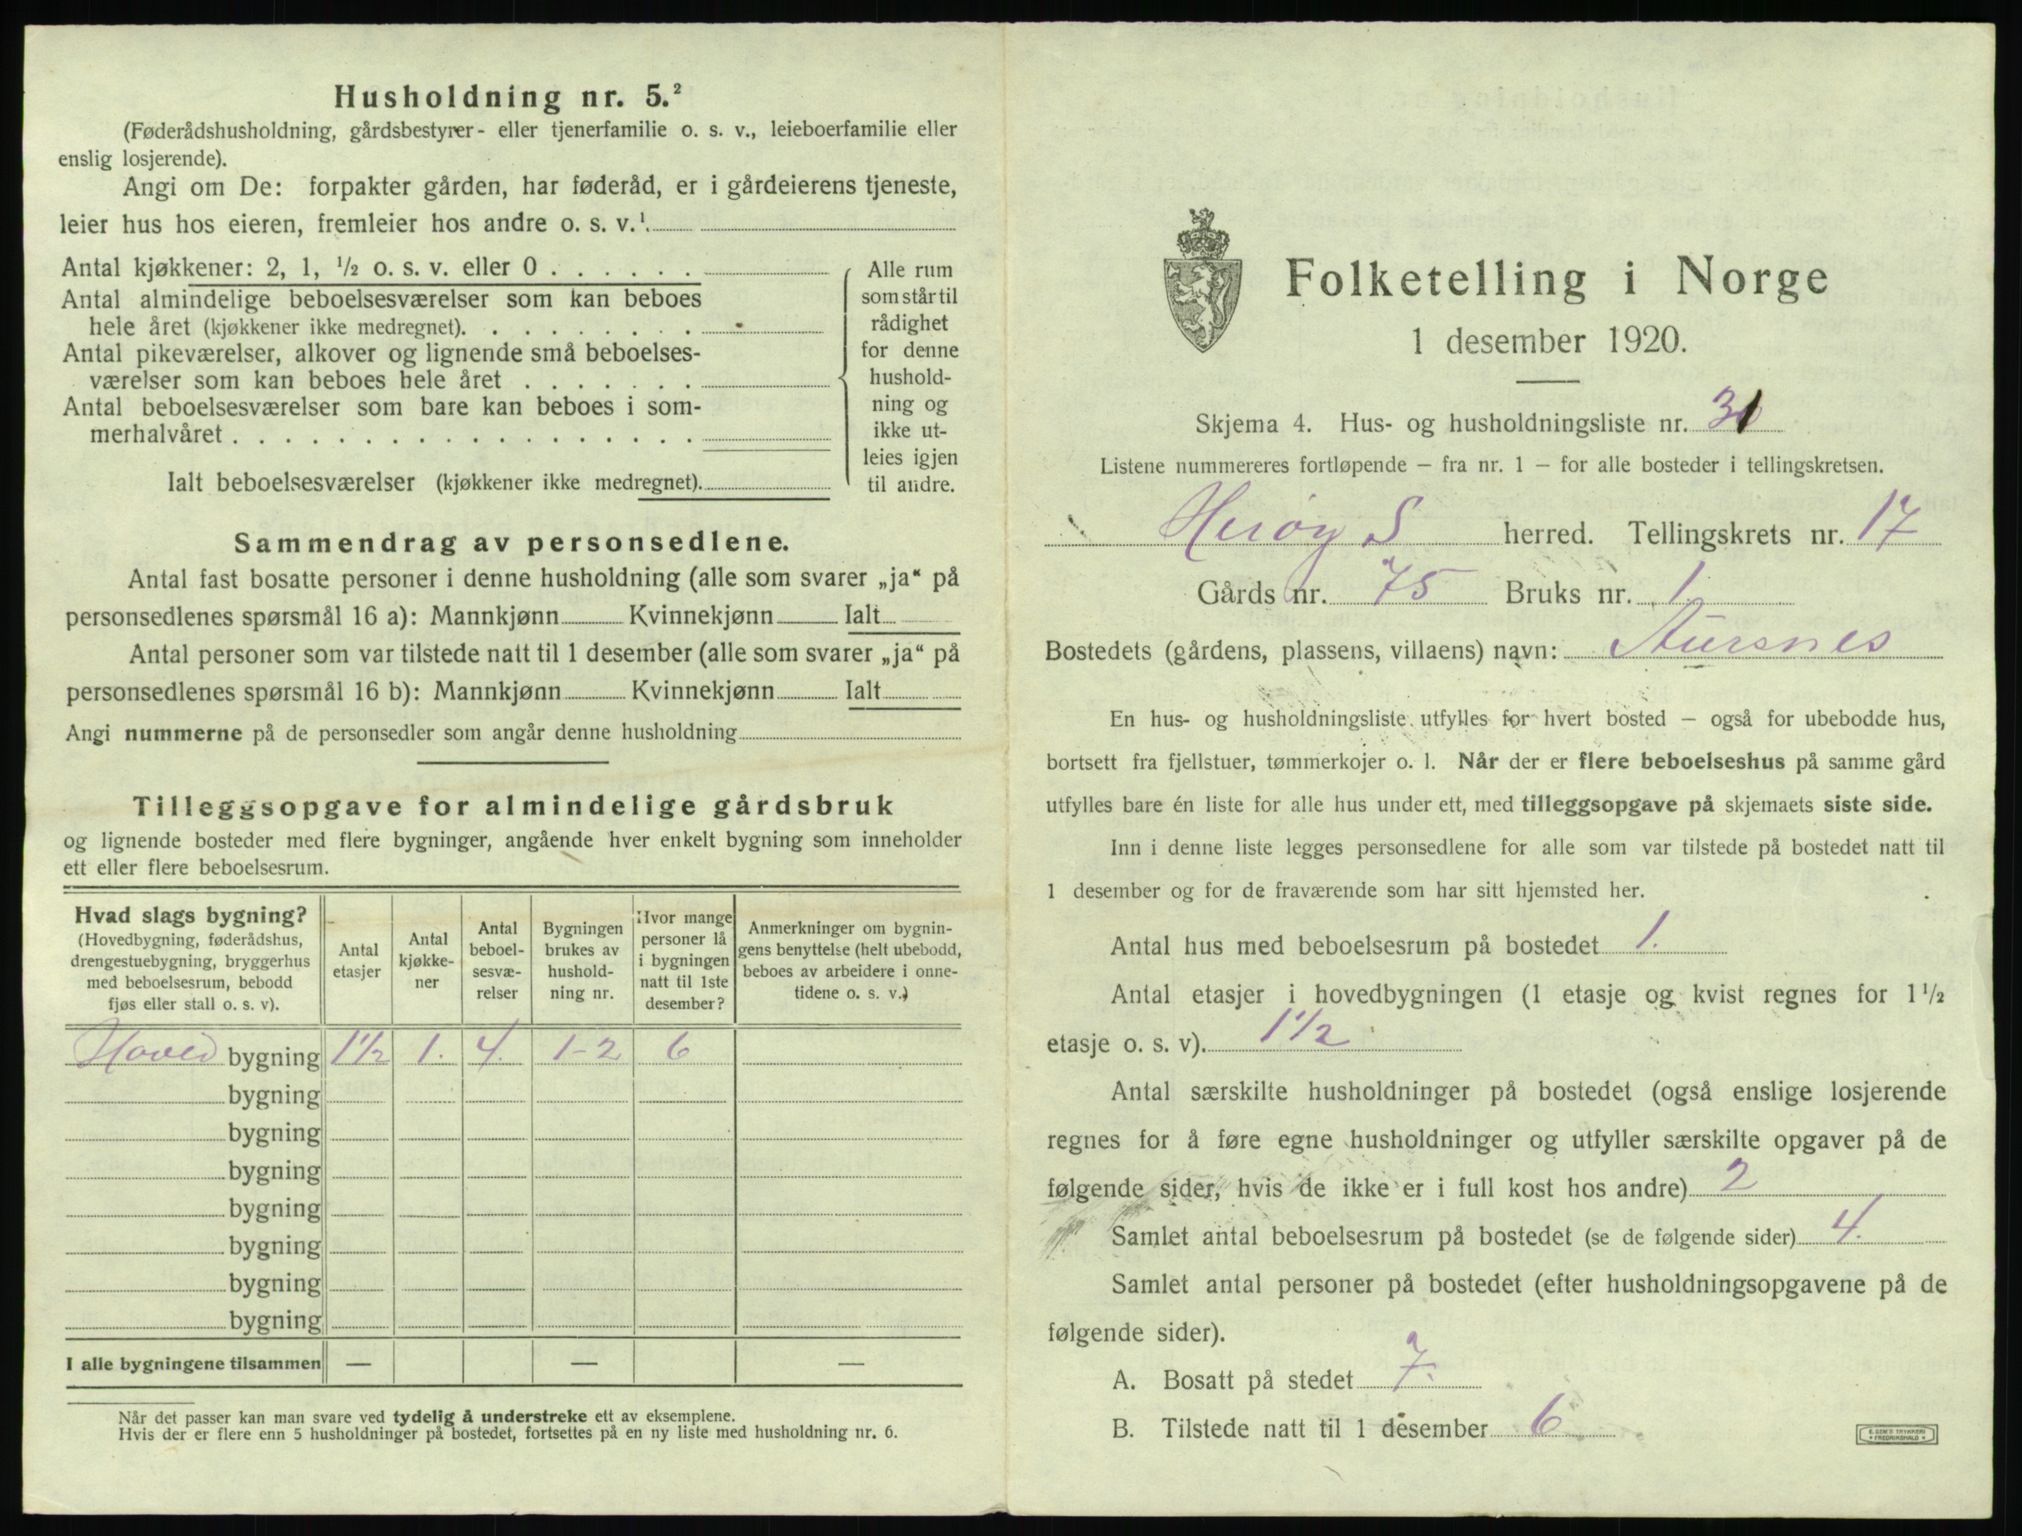 Husholdning nr. 5.²
(Føderådshusholdning, gårdsbestyrer- eller tjenerfamilie o. s. v., leieboerfamilie eller
enslig losjerende).
Angi om De: forpakter gården, har føderåd, er i gårdeierens tjeneste,
leier hus hos eieren, fremleier hos andre o. s. v.¹
Antal kjøkkener: 2, 1, ½ o. s. v. eller 0 . . . . . .
Antal almindelige beboelsesværelser som kan beboes
hele året (kjøkkener ikke medregnet). . . . . . . . .
Antal pikeværelser, alkover og lignende små beboelses-
værelser som kan beboes hele året . . . . . . .
Antal beboelsesværelser som bare kan beboes i som-
merhalvåret . . . . . . . . . . . . . . . . . .
Ialt beboelsesværelser (kjøkkener ikke medregnet).
Alle rum
som står til
rådighet
for denne
hushold-
ning og
ikke ut-
leies igjen
til andre.
Sammendrag av personsedlene.
Antal fast bosatte personer i denne husholdning (alle som svarer „ja“ på
personsedlenes spørsmål 16 a): Mannkjønn Kvinnekjønn Ialt
Antal personer som var tilstede natt til 1 desember (alle som svarer „ja“ på
personsedlenes spørsmål 16 b): Mannkjønn Kvinnekjønn Ialt
Angi nummerne på de personsedler som angår denne husholdning
Tilleggsopgave for almindelige gårdsbruk
og lignende bosteder med flere bygninger, angående hver enkelt bygning som inneholder
ett eller flere beboelsesrum.
Hvad slags bygning?
(Hovedbygning, føderådshus,
drengestuebygning, bryggerhus
med beboelsesrum, bebodd
fjøs eller stall o. s. v).
Antal
etasjer
Antal
kjøkke-
ner
Antal
beboel-
sesvæ-
relser
Bygningen
brukes av
hushold-
ning nr.
Hvor mange
personer lå
i bygningen
natt til 1ste
desember?
Anmerkninger om bygnin-
gens benyttelse (helt ubebodd,
beboes av arbeidere i onne-
tidene o. s. v.)
Hoved bygning 1½ 1. 4. 1-2 6
bygning
bygning
bygning
bygning
bygning
bygning
bygning
I alle bygningene tilsammen — — —
Når det passer kan man svare ved tydelig å understreke ett av eksemplene.
Hvis der er flere enn 5 husholdninger på bostedet, fortsettes på en ny liste med husholdning nr. 6.
Folketelling i Norge
1 desember 1920.
Skjema 4. Hus- og husholdningsliste nr. 31
Listene nummereres fortløpende – fra nr. 1 – for alle bosteder i tellingskretsen.
Herøy S herred. Tellingskrets nr. 17
Gårds nr. 75 Bruks nr. 1.
Bostedets (gårdens, plassens, villaens) navn: Aursnes
En hus- og husholdningsliste utfylles for hvert bosted – også for ubebodde hus,
bortsett fra fjellstuer, tømmerkojer o. l. Når der er flere beboelseshus på samme gård
utfylles bare én liste for alle hus under ett, med tilleggsopgave på skjemaets siste side.
Inn i denne liste legges personsedlene for alle som var tilstede på bostedet natt til
1 desember og for de fraværende som har sitt hjemsted her.
Antal hus med beboelsesrum på bostedet 1.
Antal etasjer i hovedbygningen (1 etasje og kvist regnes for 1½
etasje o. s. v). 1½
Antal særskilte husholdninger på bostedet (også enslige losjerende
regnes for å føre egne husholdninger og utfyller særskilte opgaver på de
følgende sider, hvis de ikke er i full kost hos andre) 2
Samlet antal beboelsesrum på bostedet (se de følgende sider) 4.
Samlet antal personer på bostedet (efter husholdningsopgavene på de
følgende sider).
A. Bosatt på stedet 7.
B. Tilstede natt til 1 desember 6
E. SEM'S TRYKKERI
• FREDRIKSHALD •